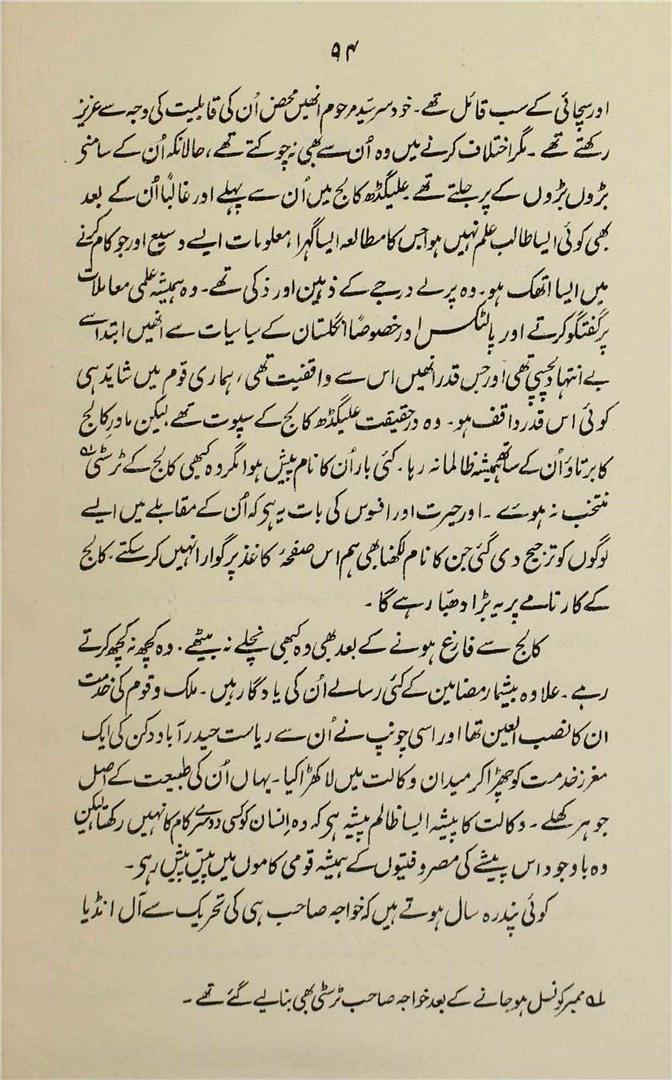 ۹۴
اور سچائی کے سب قائل تھے۔ خود سرسیّد مرحوم انھیں محض اُن کی قابلیت کی وجہ سے عزیز
رکھتے تھے۔ مگر اختلاف کرنے میں وہ اُن سے بھی نہ چوکتے تھے، حالانکہ اُن کے سامنے
بڑوں بڑوں کے پر جلتے تھے علیگڈھ کالج میں اُن سے پہلے اور غالباً اُن کے بعد
بھی کوئی ایسا طالب علم نہیں ہوا جس کا مطالعہ ایسا گہرا، معلومات ایسے وسیع اور جو کام کرنے
میں ایسا اتھک ہو۔ وہ پرلے درجے کے ذہین اور ذکی تھے۔ وہ ہمیشہ علمی معاملات
پر گفتگو کرتے اور پالٹکس اور خصوصاً انگلستان کے سیاسیات سے انھیں ابتدا سے
بے انتہا دلچسپی تھی اور جس قدر انھیں اس سے واقفیت تھی، ہماری قوم میں شاید ہی
کوئی اس قدر واقف ہو۔ وہ درحقیقت علیگڈھ کالج کے سپوت تھے لیکن مادر کالج
کا برتاؤ اُن کے ساتھ ہمیشہ ظالمانہ رہا۔ کئی بار اُن کا نام پیش ہوا مگر وہ کبھی کالج کے ٹرسٹی ؎۱
منتخب نہ ہوئے۔ اور حیرت اور افسوس کی بات یہ ہی کہ اُن کے مقابلے میں ایسے
لوگوں کو ترجیح دی گئی جن کا نام لکھنا بھی ہم اس صفحۂ کاغذ پر گوارا نہیں کر سکتے۔ کالج
کے کارنامے پر یہ بڑا دھبّا رہے گا۔
کالج سے فارغ ہونے کے بعد بھی وہ کبھی نچلے نہ بیٹھے۔ وہ کچھ نہ کچھ کرتے
رہے۔ علاوہ بیشمار مضامین کے کئی رسالے اُن کی یادگار ہیں۔ ملک و قوم کی خدمت
ان کا نصب العین تھا اور اسی چونپ نے اُن سے ریاست حیدرآباد دکن کی ایک
معزز خدمت کو چھڑا کر میدان وکالت میں لا کھڑا کیا۔ یہاں اُن کی طبیعت کے اصل
جوہر کھلے۔ وکالت کا پیشہ ایسا ظالم پیشہ ہی کہ وہ انسان کو کسی دوسرے کام کا نہیں رکھتا لیکن
وہ باوجود اس پیشے کی مصروفیتوں کے ہمیشہ قومی کاموں میں پیش پیش رہی۔
کوئی پندرہ سال ہوتے ہیں کہ خواجہ صاحب ہی کی تحریک سے آل انڈیا
؎۱ ممبر کونسل ہو جانے کے بعد خواجہ صاحب ٹرسٹی بھی بنا لیے گئے تھے۔